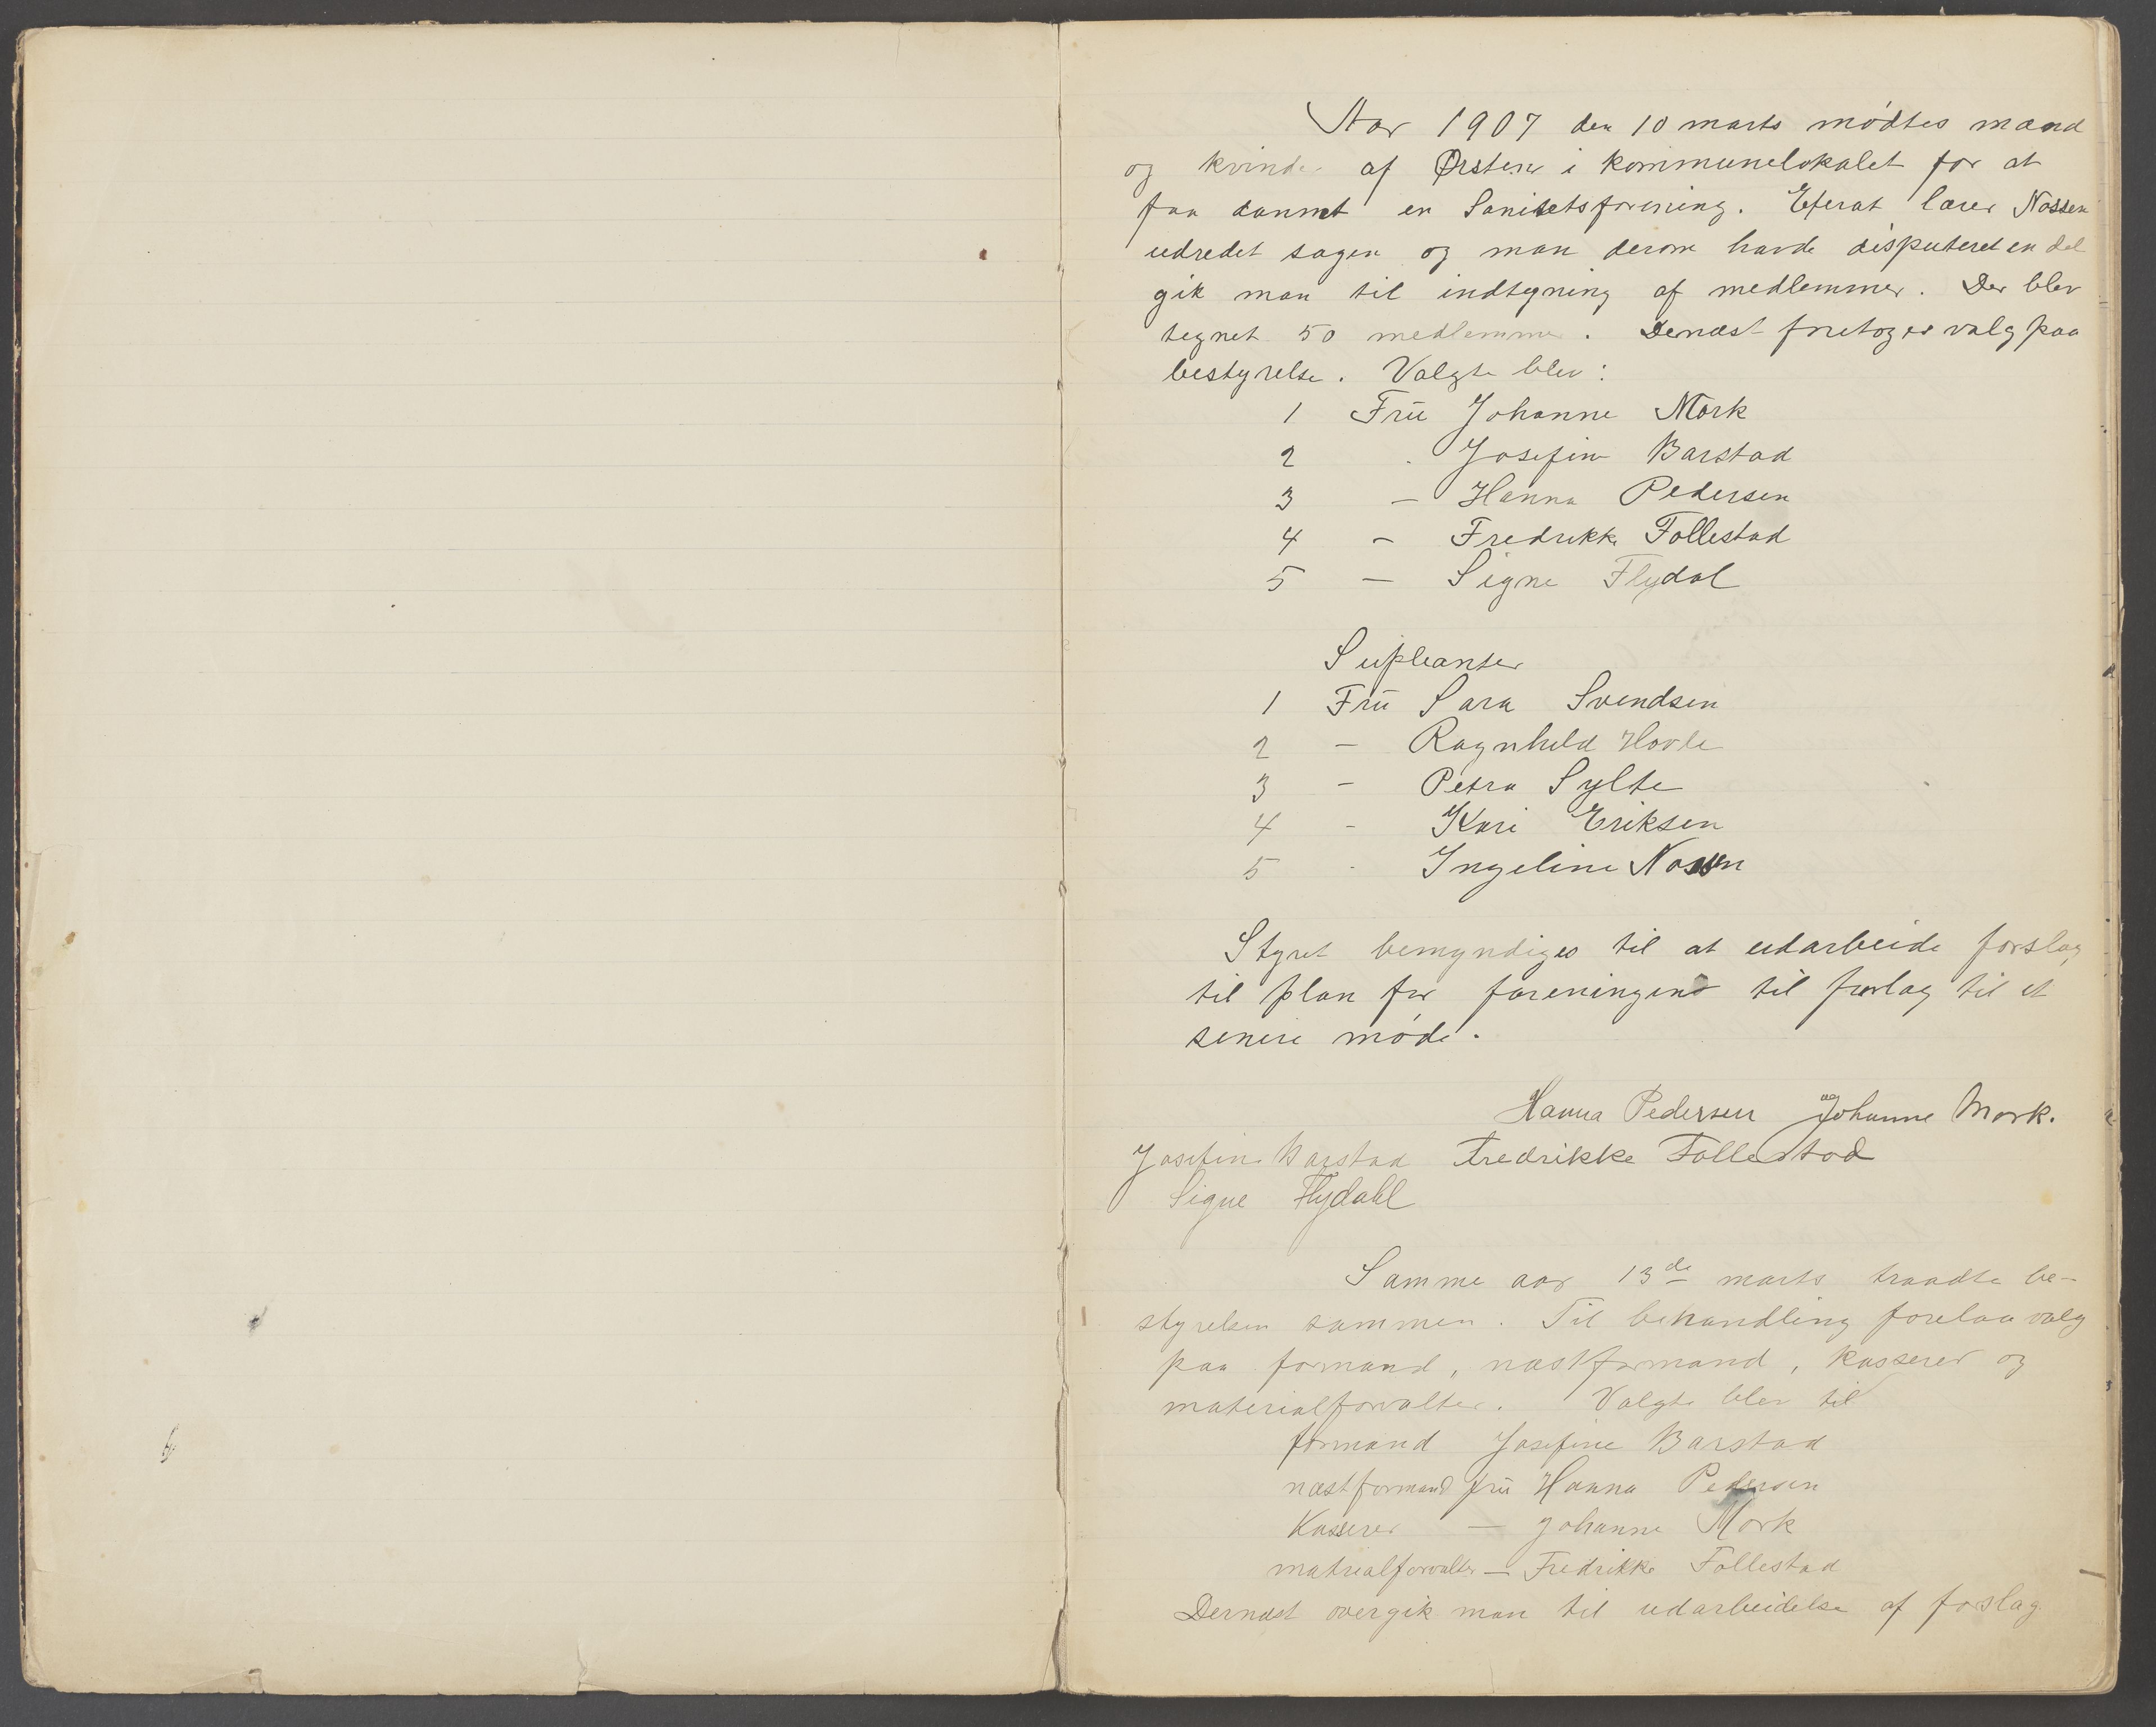 Aar 1907 den 10 marts mødtes mænd
og kvinder af Ørsten i kommunelokalet for at
faa dannet en Sanitetsforening. Efterat lærer Nossen
udredet sagen og man derom havde disputeret en del
gik man til indtegning af medlemmer. Der blev
tegnet 50 medlemmer. Dernæst foretoges valg paa
bestyrelse. Valgte blev:
1 Frü Johanne Mork
2 - Josefine Barstad
3 - Hanna Pedersen
4 - Fredrikke Follestad
5 - Signe Flydal
Supleanter
1 Frü Sara Svendsen
2 - Ragnhild Hovle
3 - Petra Sylte
4 - Kari Eriksen
5 - Ingeline Nossen
Styret bemyndiges til at udarbeide forslag
til plan for foreningens til forslag til et
senere møde.
Hanna Pedersen Johanne Mork.
Josefine Barstad Fredrikke Follestad
Signe Flydahl
Samme aar 13de marts traadte be-
styrelsen sammen. Til behandling forelaa valg
paa formand, næstformand, kasserer og
materialforvalter. Valgte blev til
formand Josefine Barstad
næstformand frü Hanna Pedersen
Kasserer - Johanne Mork
matrialforvalter - Fredrikke Follestad
Dernæst overgik man til udarbeidelse af forslag